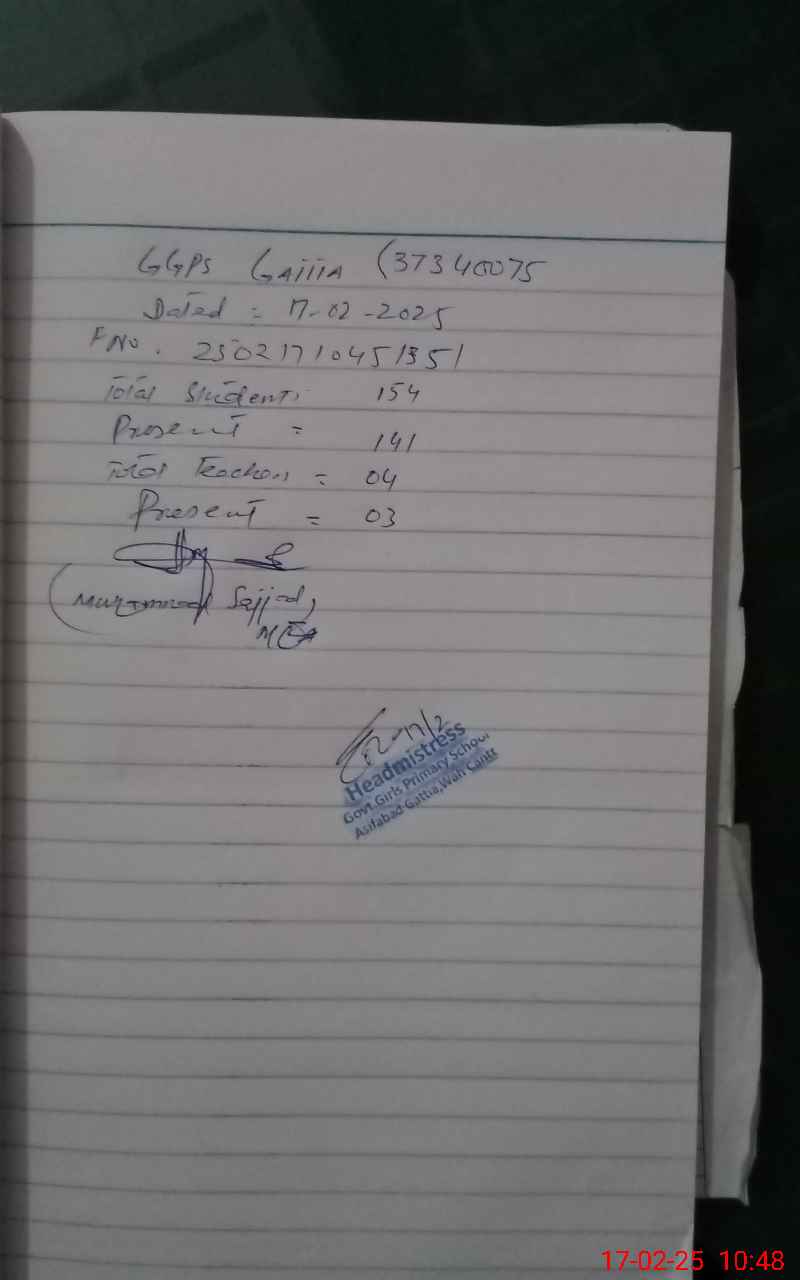 GGPS GATTIA (37340075
Dated = 17-02-2025
F No. 25021710451351
Total Students 154
Present = 141
Total Teachers = 04
Present = 03
(Muhammad Sajjad)
MEA
17/2
Headmistress
Govt.Girls Primary School
Asifabad Gattia, Wah Cantt
17-02-25 10:48